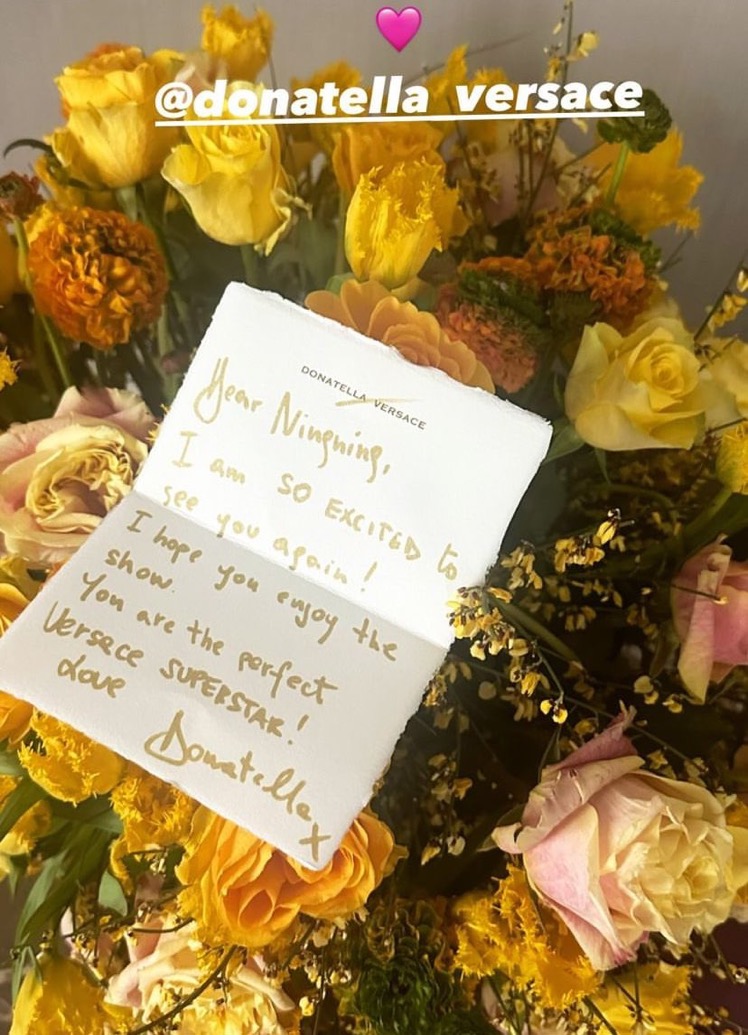 @donatella_versace
DONATELLA VERSACE
Dear Ningning,
I am SO EXCITED to
see you again!
I hope you enjoy the
show.
You are the perfect
Versace SUPERSTAR!
Love
Donatella
x